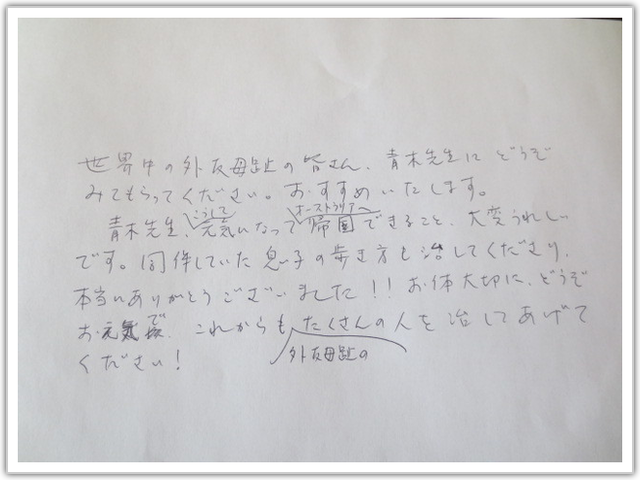 世界中の外反母趾の皆さん、青木先生にどうぞ
みてもらってください。おすすめいたします。
青木先生、こうして元気になってオーストラリアへ帰国できること、大変うれしい
です。同伴していた息子の歩き方も治してくださり、
本当にありがとうございました!!お体大切に、どうぞ
お元気で、これからもたくさんの人を治してあげて
外反母趾の
ください!